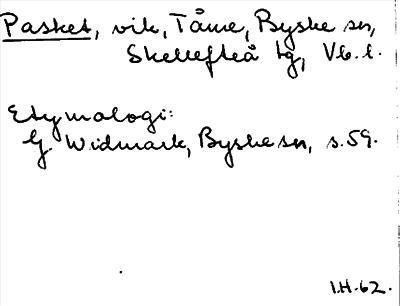 Pasket, vik, Tåme, Byske sn,
Skellefteå tg, Vb. l.
Etymologi:
G Widmark, Byske sn, s. 59.
I.H. 62.